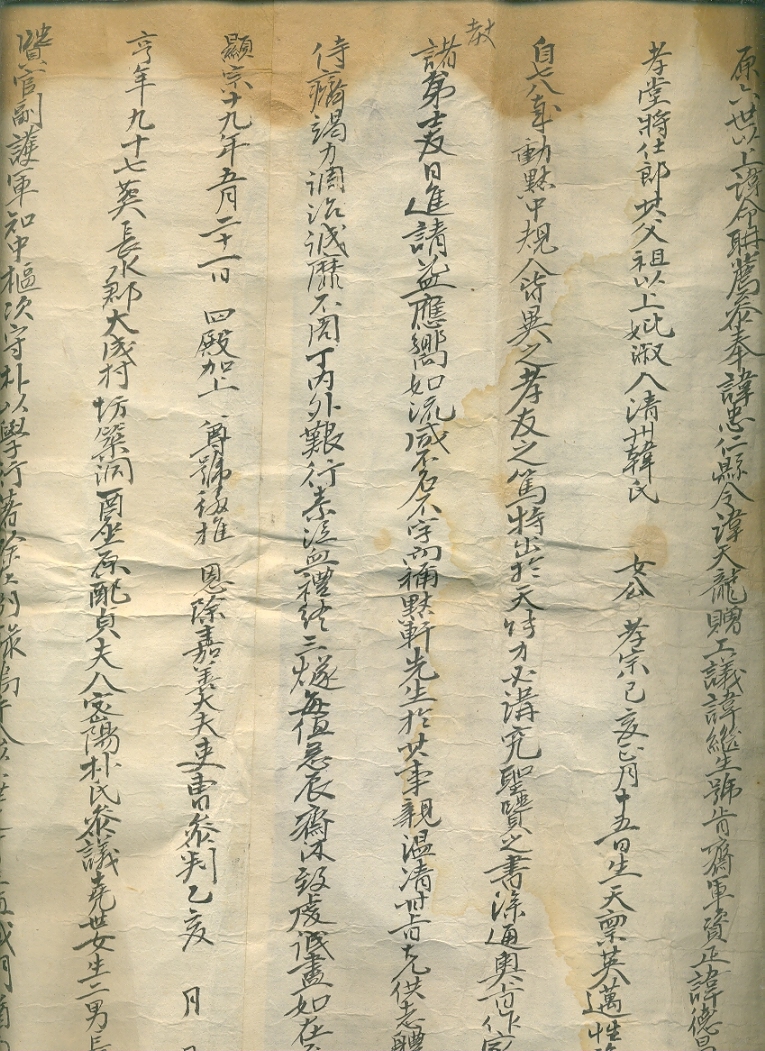 原六世以上諱命聃薦參奉諱忠仁縣令諱天龍贈工議諱繼生號肯齋軍資正諱德昌
孝堂將仕郎其父祖以上妣淑人清州韓氏 女公 孝宗己亥正月十五日生天稟英邁性
自七八歲動黙中規人皆異之孝友之篤特出於天特力必講究聖賢之書深通奧旨作
教
諸弟士友日進請益應嚮如流咸不名不字而稱黙軒先生於其事親溫凊甘旨克供志體
侍癠竭力調治誠靡不周丁內外艱行素泣血禮終三燧每值忌辰齋沐致虔誠盡如在
顯宗十九年五月二十一日 四殿加上 尊號移推 恩除嘉善大夫吏曹參判乙亥 月
享年九十七葬長水郡大成村坊築洞酉坐原配貞夫人密陽朴氏參議堯世女生二男長
贈官副護軍知中樞次守朴以學行著